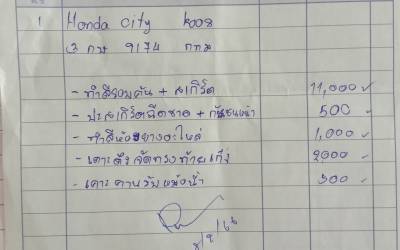 1 Honda City ปี 2008
3 กษ 9174 กทม
- ทำสีรอบคัน + สเกิร์ต 11,000
- ปะสเกิร์ตฉีกขาด + กันชนหน้า 500
- ทำสีห้องยางอะไหล่ 1,000
- เคาะดึงจัดทรงท้ายเก๋ง 2000
- เคาะคานรับหม้อน้ำ 300
8/9/66